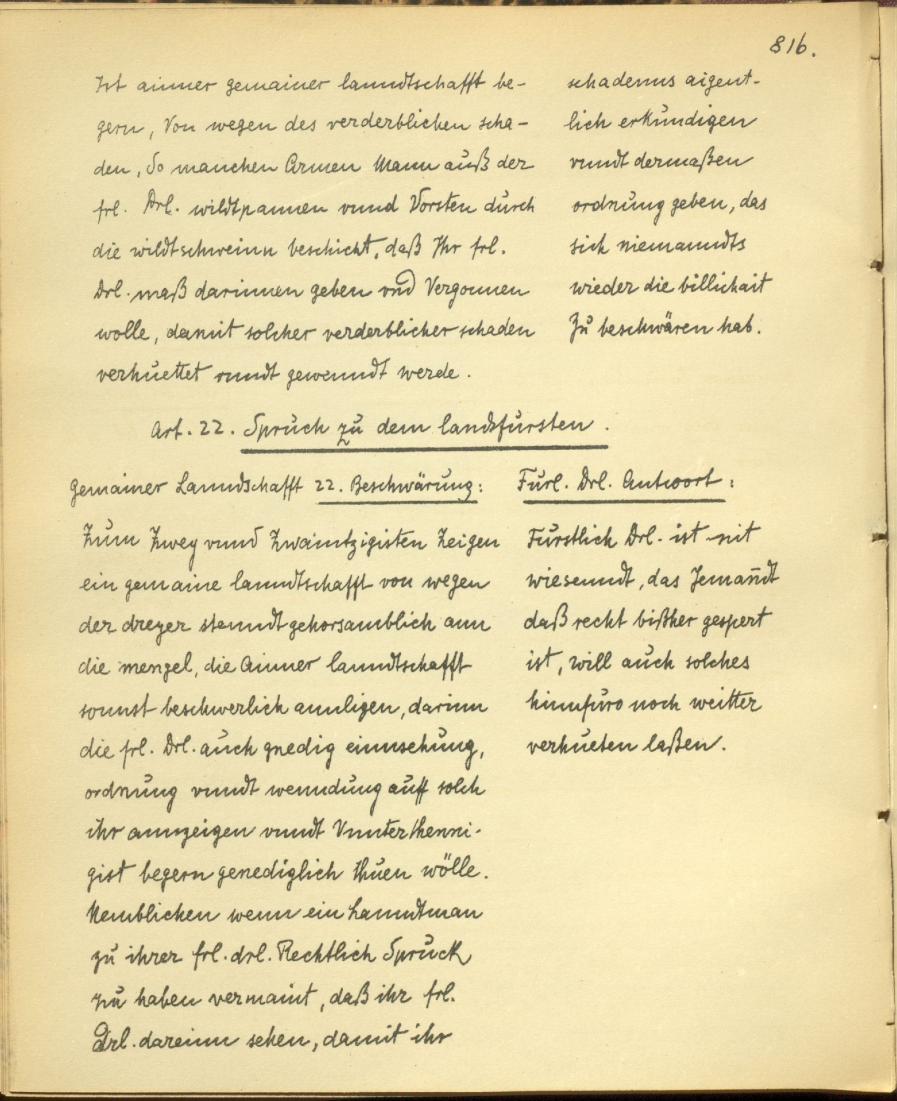 816.
Ist ainner gemainer lanndtschafft be-
gern, Von wegen des verderblichen scha-
den, So manchen Armen Mann auß der
frl. Drl. wildtpannen vnnd Vorsten durch
die wildtschweinn beschicht, daß Ihr frl.
Drl. maß darinnen geben vnd Vergonnen
wolle, damit solcher verderblicher schaden
verhuettet vnndt gewenndt werde.
schadenns aigent-
lich erkundigen
vnndt dermaßen
ordnung geben, das
sich niemanndts
wieder die billichait
Zu beschwären hab.
Art. 22. Spruch zu dem landsfursten.
Gemainer Lanndschafft 22. Beschwärung:
Zum Zwey vnnd Zwaintzigisten Zeigen
ein gemaine lanndtschafft von wegen
der dreyer stenndt gehorsamblich ann
die mengel, die Ainner lanndtschafft
sonnst beschwerlich annligen, darinn
die frl. Drl. auch gnedig einnsehung,
ordnung vnndt wenndung auff solch
ihr annzeigen vnndt Vnnterthenni-
gist begern genediglich thuen wölle.
Nemblichen wenn ein Lanndtman
zu ihrer frl. drl. Rechtlich Spruck
zu haben vermaint, daß ihr frl.
Drl. dareinn sehen, damit ihr
Fürl. Drl. Antwort:
Furstlich Drl. ist nit
wiesenndt, das Jemandt
daß recht bißher gespert
ist, will auch solches
hinnfuro noch weitter
verhueten laßen.